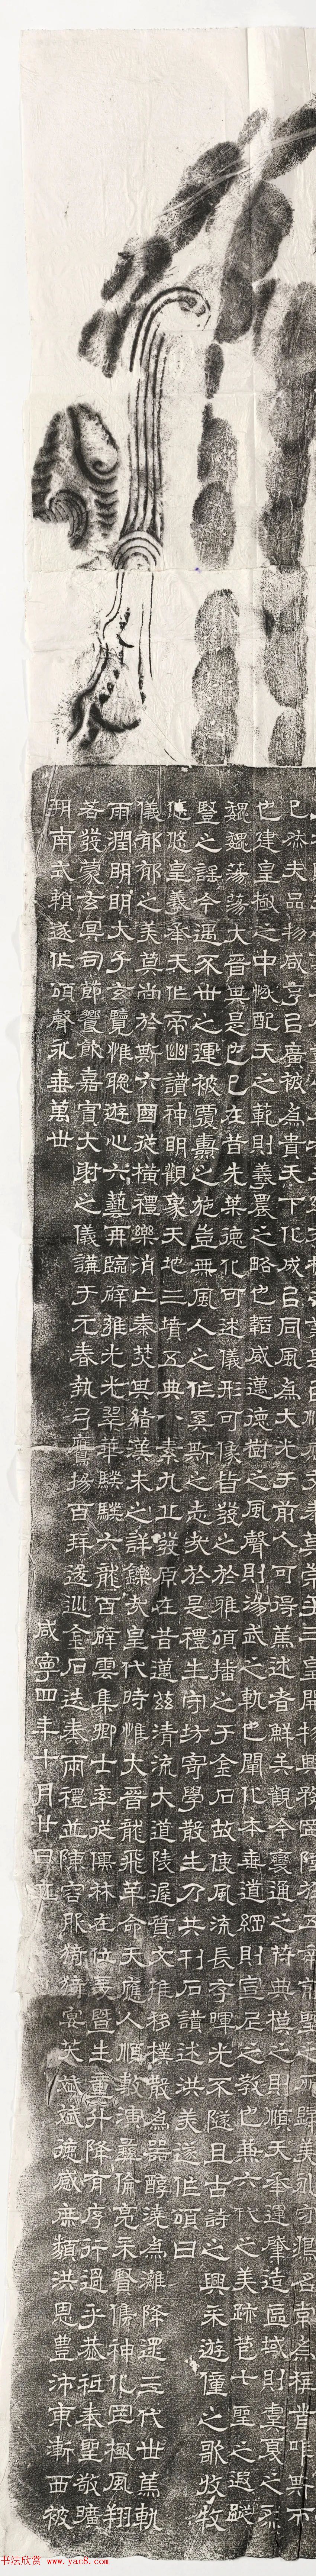 已然夫品物咸亨以廣被為貴天下化成以同風為大光于前人可得蓋述者鮮矣觀今變通之符典模之則順天承運肇造區域則虞夏之烈
也建皇極之中恢配天之範則羲農之略也韜威邁德樹之風聲則湯武之軌也闡化本垂道綱則宣尼之教也兼六代之美跡苞七聖之遐蹤
巍巍蕩蕩大晉其是已巳在昔先業德化可述儀形可像皆發之於雅頌播之于金石故使風流長存暉光不隧且古詩之興采遊僮之歌收牧
豎之謠今遇不世之運被覆燾之施豈無風人之作奚斯之志哉於是禮生守坊寄學散生乃共刊石讚述洪美遂作頌曰
悠悠皇羲承天作帝幽讚神明觀象天地三墳五典八素九丘發原在昔邁茲清流大道陵遲質文推移樸散為器醇澆為漓降還三代世篤軌
儀郁郁之美莫尚於斯六國從橫禮樂消亡秦焚其緒漢未之詳鑠哉皇代時惟大晉龍飛革命天應人順敷演彝倫亮采賢儁神化罔極風翔
雨潤明明大子玄覽惟聰遊心六藝再臨辟雍光光翠華騤騤六飛百辟雲集卿士率從儒林在位爰暨生童升降有序行過乎恭祗奉聖敬曠
若發蒙玄冥司節饗飲嘉賓大射之儀講于元春執弓鷹揚百拜逡巡金石迭奏兩禮並陳容服猗猗宴笑斌斌德感庶類洪恩豐沛東漸西被
朔南式賴遂作頌聲永垂萬世
咸寧四年十月廿日立
书法欣赏 www.yac8.com